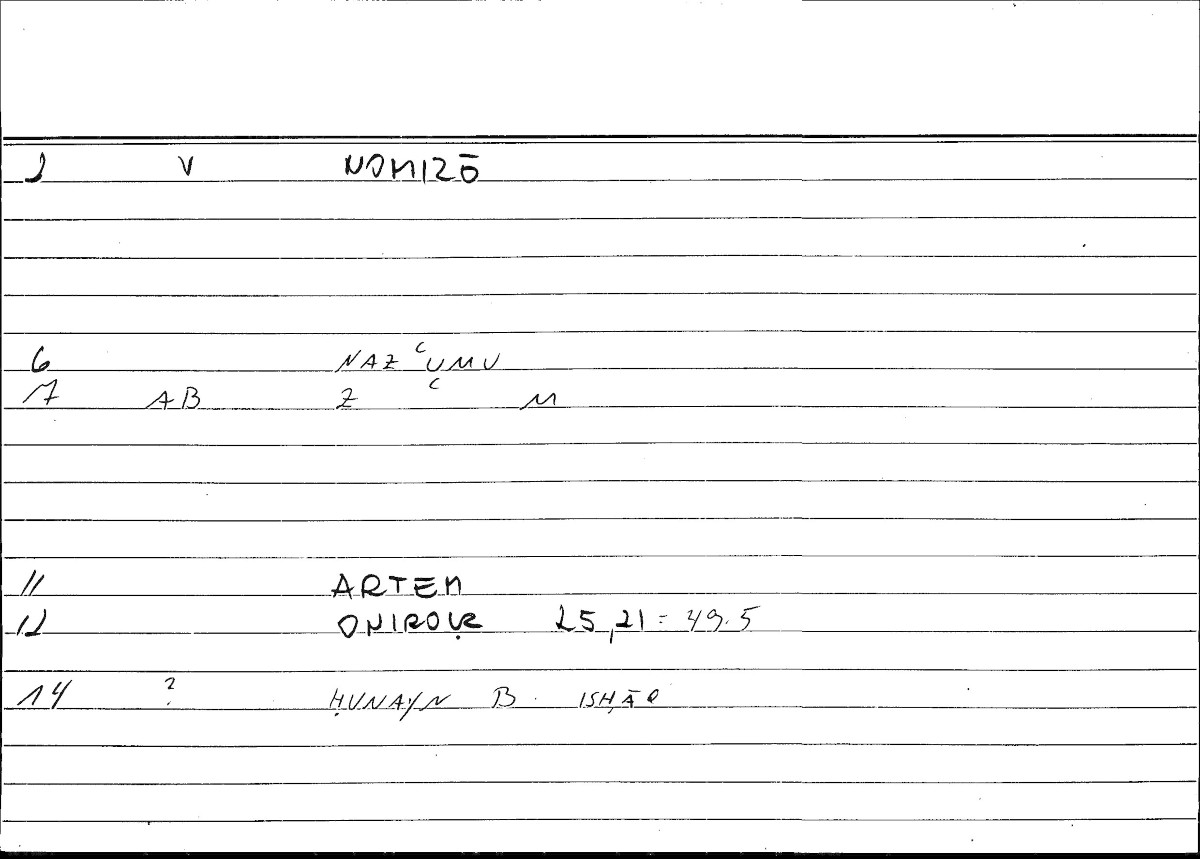 2 V NOMIZŌ
6 NAZ ʿUMU
7 AB Z ʿ M
11 ARTEM
12 ONIROḲR 25,21 = 49.5
14 ? ḤUNAYN B. ISḤĀQ